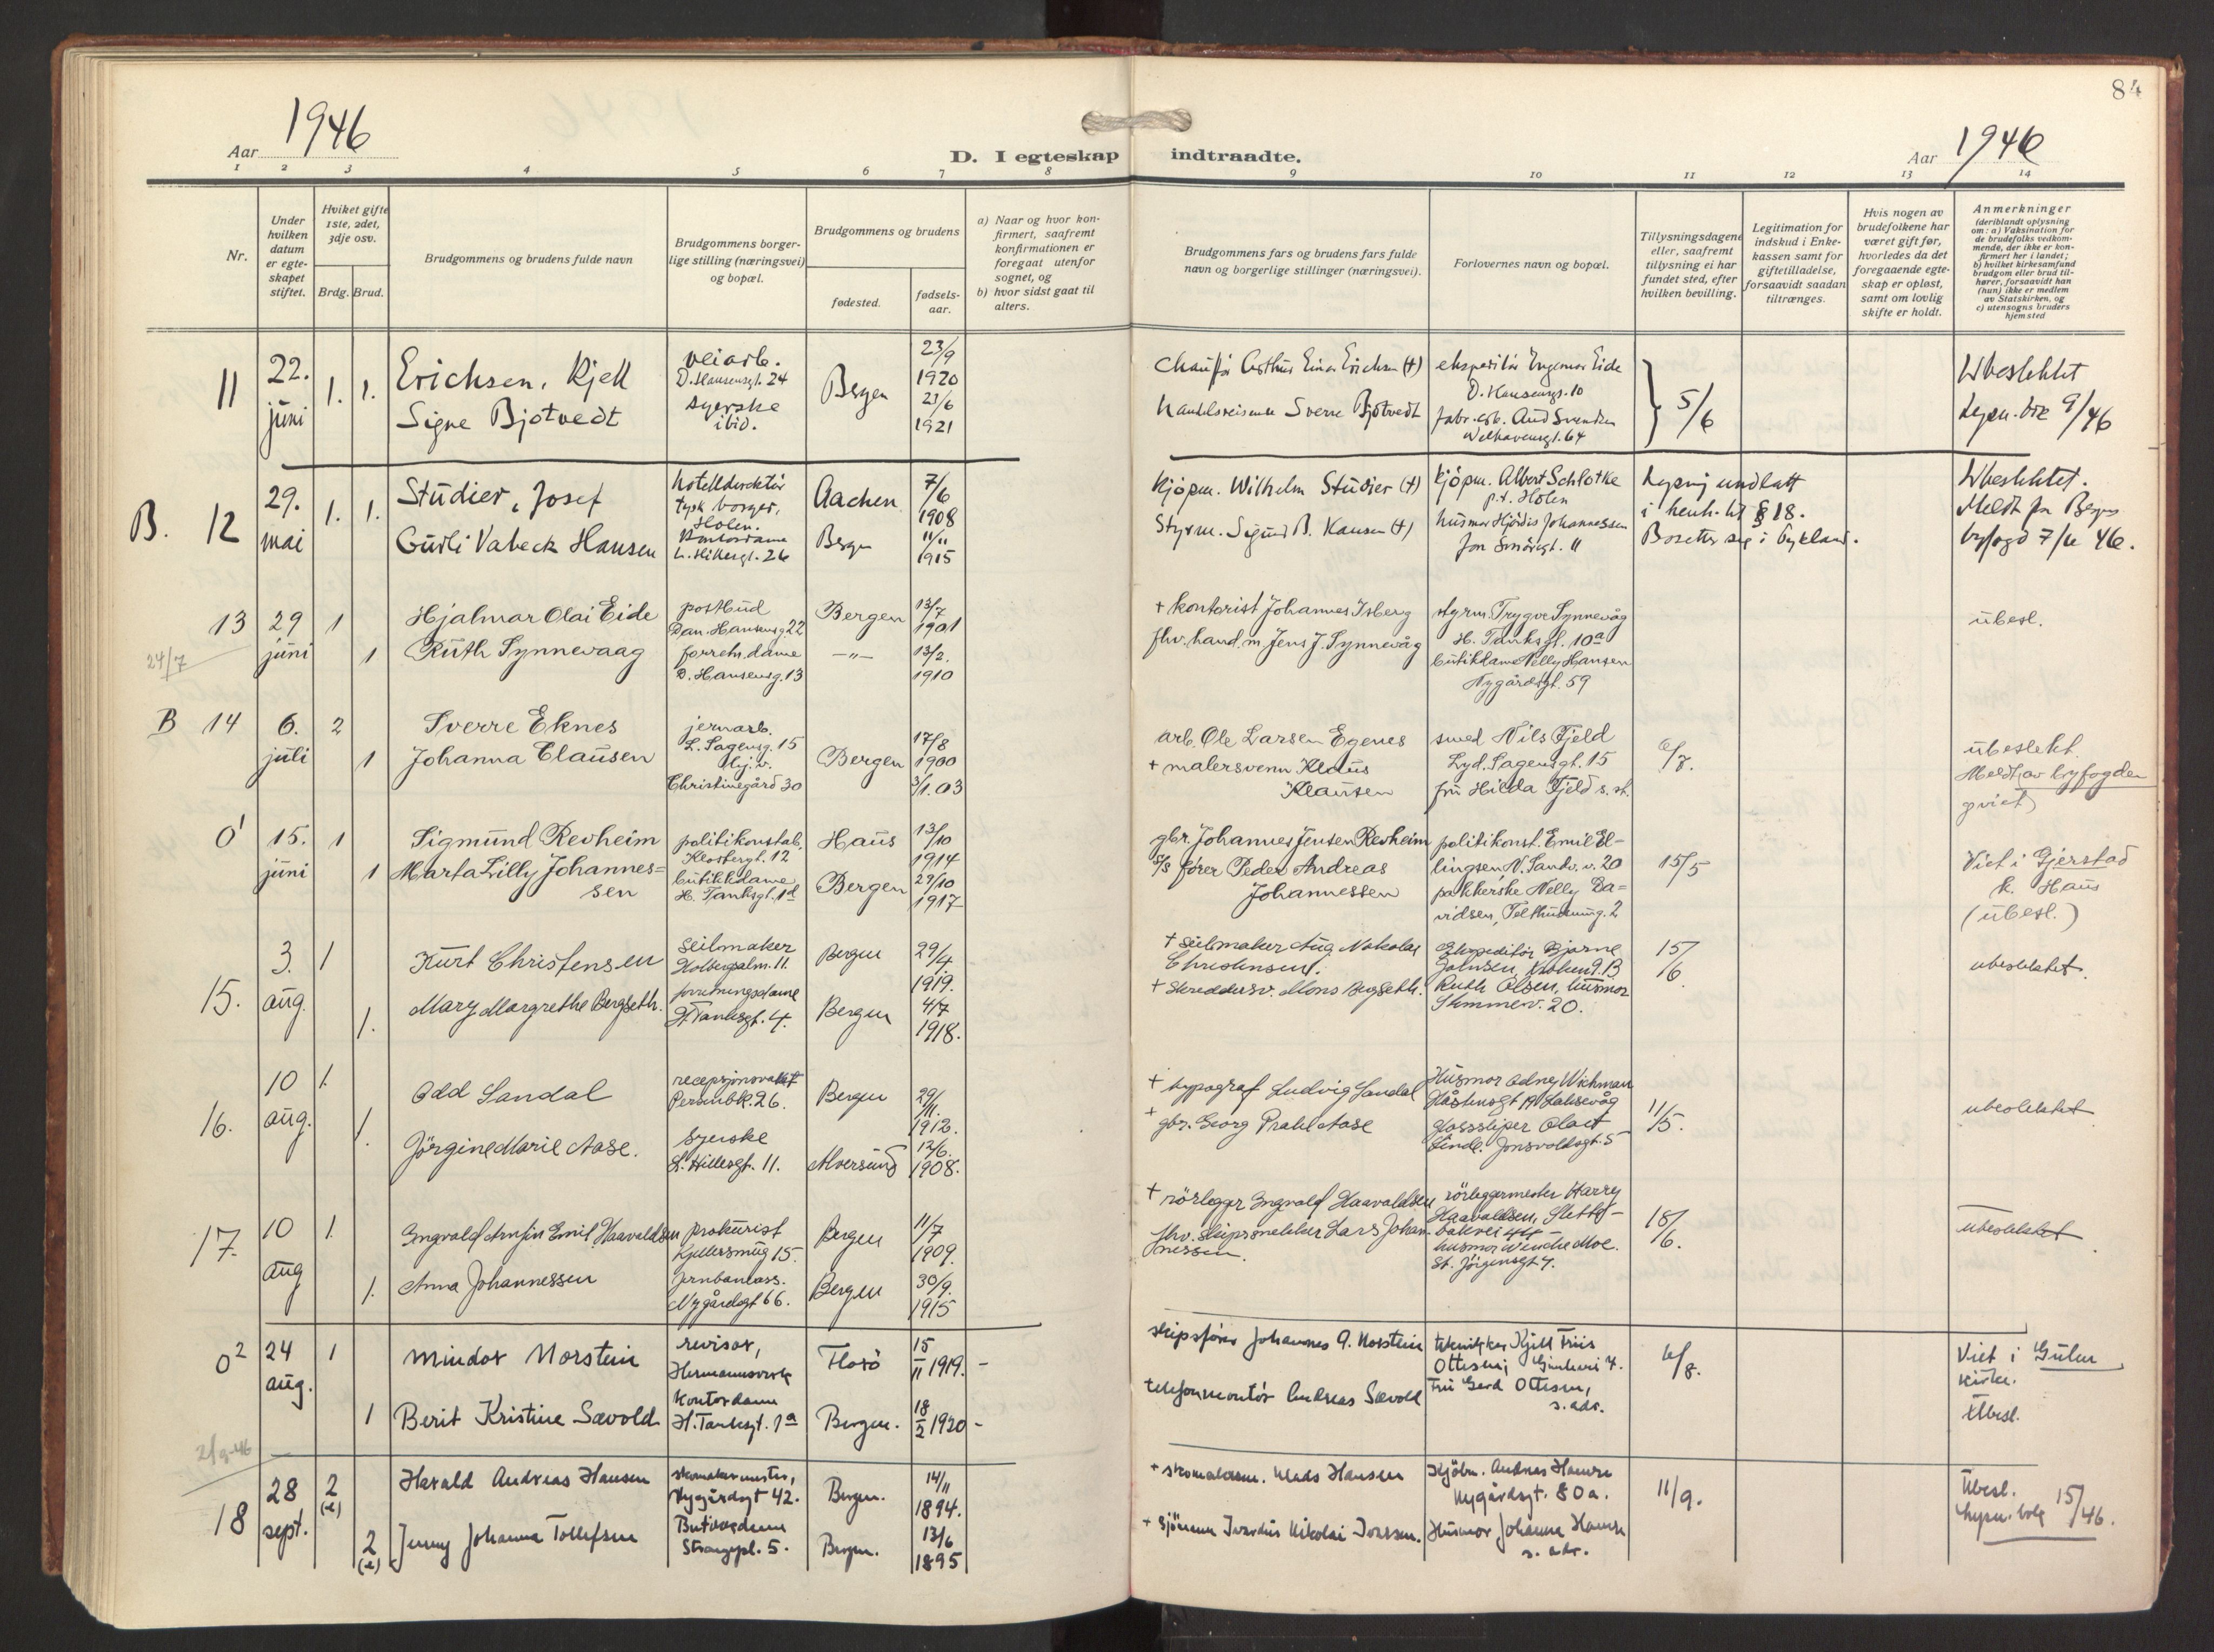 84
1946
1946
Aar
D. I egteskap indtraadte.
Aar
1 2 3 4 5 6 7 8 9 10 11 12 13 14
Nr.
Under
hvilken
datum
er egte-
skapet
stiftet.
Hviket gifte
1ste, 2det,
3dje osv.
Brdg. Brud.
Brudgommens og brudens fulde navn
Brudgommens borger-
lige stilling (næringsvei)
og bopæl.
Brudgommens og brudens
fødested.
fødsels-
aar.
a) Naar og hvor kon-
firmert, saafremt
konfirmationen er
foregaat utenfor
sognet, og
b) hvor sidst gaat til
alters.
Brudgommens fars og brudens fars fulde
navn og borgerlige stillinger (næringsvei).
Forlovernes navn og bopæl.
Tillysningsdagene
eller, saafremt
tillysning ei har
fundet sted, efter
hvilken bevilling.
Legitimation for
indskud i Enke-
kassen samt for
giftetilladelse,
forsaavidt saadan
tiltrænges.
Hvis nogen av
brudefolkene har
været gift før,
hvorledes da det
foregaaende egte-
skap er opløst,
samt om lovlig
skifte er holdt.
Anmerkninger
(deriblandt oplysning
om: a) Vaksination for
de brudefolks vedkom-
mende, der ikke er kon-
firmert her i landet;
b) hvilket kirkesamfund
brudgom eller brud til-
hører, forsaavidt han
(hun) ikke er medlem
av Statskirken, og
c) utensogns bruders
hjemsted
11
22.
juni
1. 1.
Erichsen, Kjell
Signe Bjotvedt
veiarb.
D. Hansensgt. 24
syerske
ibid.
Bergen
23/9
1920
23/6
1921
Handelsreisende Sverre Bjotvedt
ekspeditør Ingemar Eide
D. Hansensgt. 10
fabr.arb. Aud Svendsen
Welhavensgt. 64
5/6
Ubeslektet
9/46
B. 12
29.
mai
1. 1.
Studier, Josef
Gurli Vabeck Hansen
hotelldirektør
tysk borger,
Holen.
Kontordame
L. Hillesgt. 26
Aachen
Bergen
7/6
1908
11/11
1915
Kjøpm. Wilhelm Studier (+)
Styrm. Sigurd B. Hansen (+)
Kjøpm. Albert Schlotke
p.t. Holen
husmor Hjørdis Johannessen
Lysning undlatt
i henh. til § 18.
Ubeslektet.
Meldt fra Bergen
byfogd 7/6 46.
13
24/7
29
juni
1
1
Hjalmar Olai Eide
Ruth Synnevaag
postbud
Dan. Hansensg. 22
forretn.dame
D. Hansensg. 13
Bergen
—"—
13/7
1901
13/2.
1910
+ kontorist Johannes Isberg
fhv. hand.m. Jens J. Synnevåg
styrm Trygve Synnevåg
H. Tanksgt. 10a
butikdame Nelly Hansen
Nygårdsgt. 59
ubesl.
B 14
6.
juli
2
1
Sverre Eknes
Johanna Clausen
jernarb.
L. Sagensg. 15
Christinegård 30
Bergen
17/8
1900
3/1.03
arb. Ole Larsen Egenes
+ malersvenn Klaus
Klausen
smed Nils Fjeld
Lyd. Sagensgt. 15
fru Hilda Fjeld s. st.
6/7.
ubeslekt.
Meldt av byfogden
gviet
01
15.
juni
1
1
Sigmund Revheim
Marta Lilly Johannes=
sen
politikonstab.
Klostergt. 12
butikkdame
H. Tanksgt. 1d
Haus
Bergen
13/10
1914
29/10
1917
gbr. Johannes Jensen Revheim
S/S fører Peder Andreas
Johannessen
politikonst. Emil El-
lingsen, N. Sandv. v. 20
pakkerske Nelly Da=
vidsen,
15/5
Viet i Gjerstad
k. Haus
(ubesl.)
15.
3.
aug.
1
1.
Kurt Christensen
Mary Margrethe Bergseth.
Seilmaker
Holbergsalm. 11.
forretningsdame
H. Tanksgt. 4.
Bergen
Bergen
29/4
1919.
4/7
1918.
+ Seilmaker Aug Nikolai
Christensen.
+ Skreddersv. Mons Bergseth.
Ekspeditør Bjarne
Johnsen,
Ruth Olsen, husmor
20.
15/6
ubeslektet.
16.
10
aug.
1.
1.
Odd Sandal
Jørgine Marie Aase.
Syerske
L. Hillesgt. 11.
Bergen
Alversund
29/11.
1912.
12/6.
1908.
+ typograf Ludvig Sandal
+ gbr. Georg Prahl Aase
Husmor Edney Wichman
Jonsvollsgt. 5
11/5.
ubeslektet
17.
10
aug
1.
1.
Ingvald Arnfin Emil Haavaldsen
Anna Johannessen
prokurist
Kjellersmug 15.
Jernbaneass.
Nygårdsgt 66.
Bergen
Bergen
11/7
1909.
30/9.
1915
+ rørlegger Ingvald Haavaldsen
fhv. skipssnekker Lars Johan-
nessen.
rørleggermester Harry
Haavaldsen, Slette-
bakvei 44
husmor Wenche Moe.
St. Jörgensgt 7.
18/6.
ubeslektet
02
24
aug.
1
1
Mindor Norstein
Berit Kristine Sævold
revisor,
Hermansverk
Kontordame
H. Tanksgt. 1a
Florö
Bergen.
15/11 1919. -
18/2 1920 -
skipsfører Johannes A. Norstein
telefonmontör Andreas Sævold
tekniker Kjell Friis
Ottesen,
Fru Gerd Ottesen,
s. adr.
6/8.
Viet i Gulen
kirke.
Ubesl.
2/9-46
18
28
sept.
2
(e)
2
(e)
Harald Andreas Hansen
Jenny Johanna Tollefsen
skomakermester,
Nygårdsgt 42.
Butikkdame
Strangepl. 5.
Bergen.
Bergen.
14/11
1894.
13/6
1895
+ skomakerm. Mads Hansen
+ Sjömann Nikolai
Kjøbm. Andreas Hamre
Nygårdsgt. 80a.
Husmor Johanna Hamre
s. adr.
11/9.
Ubesl.
15/46.